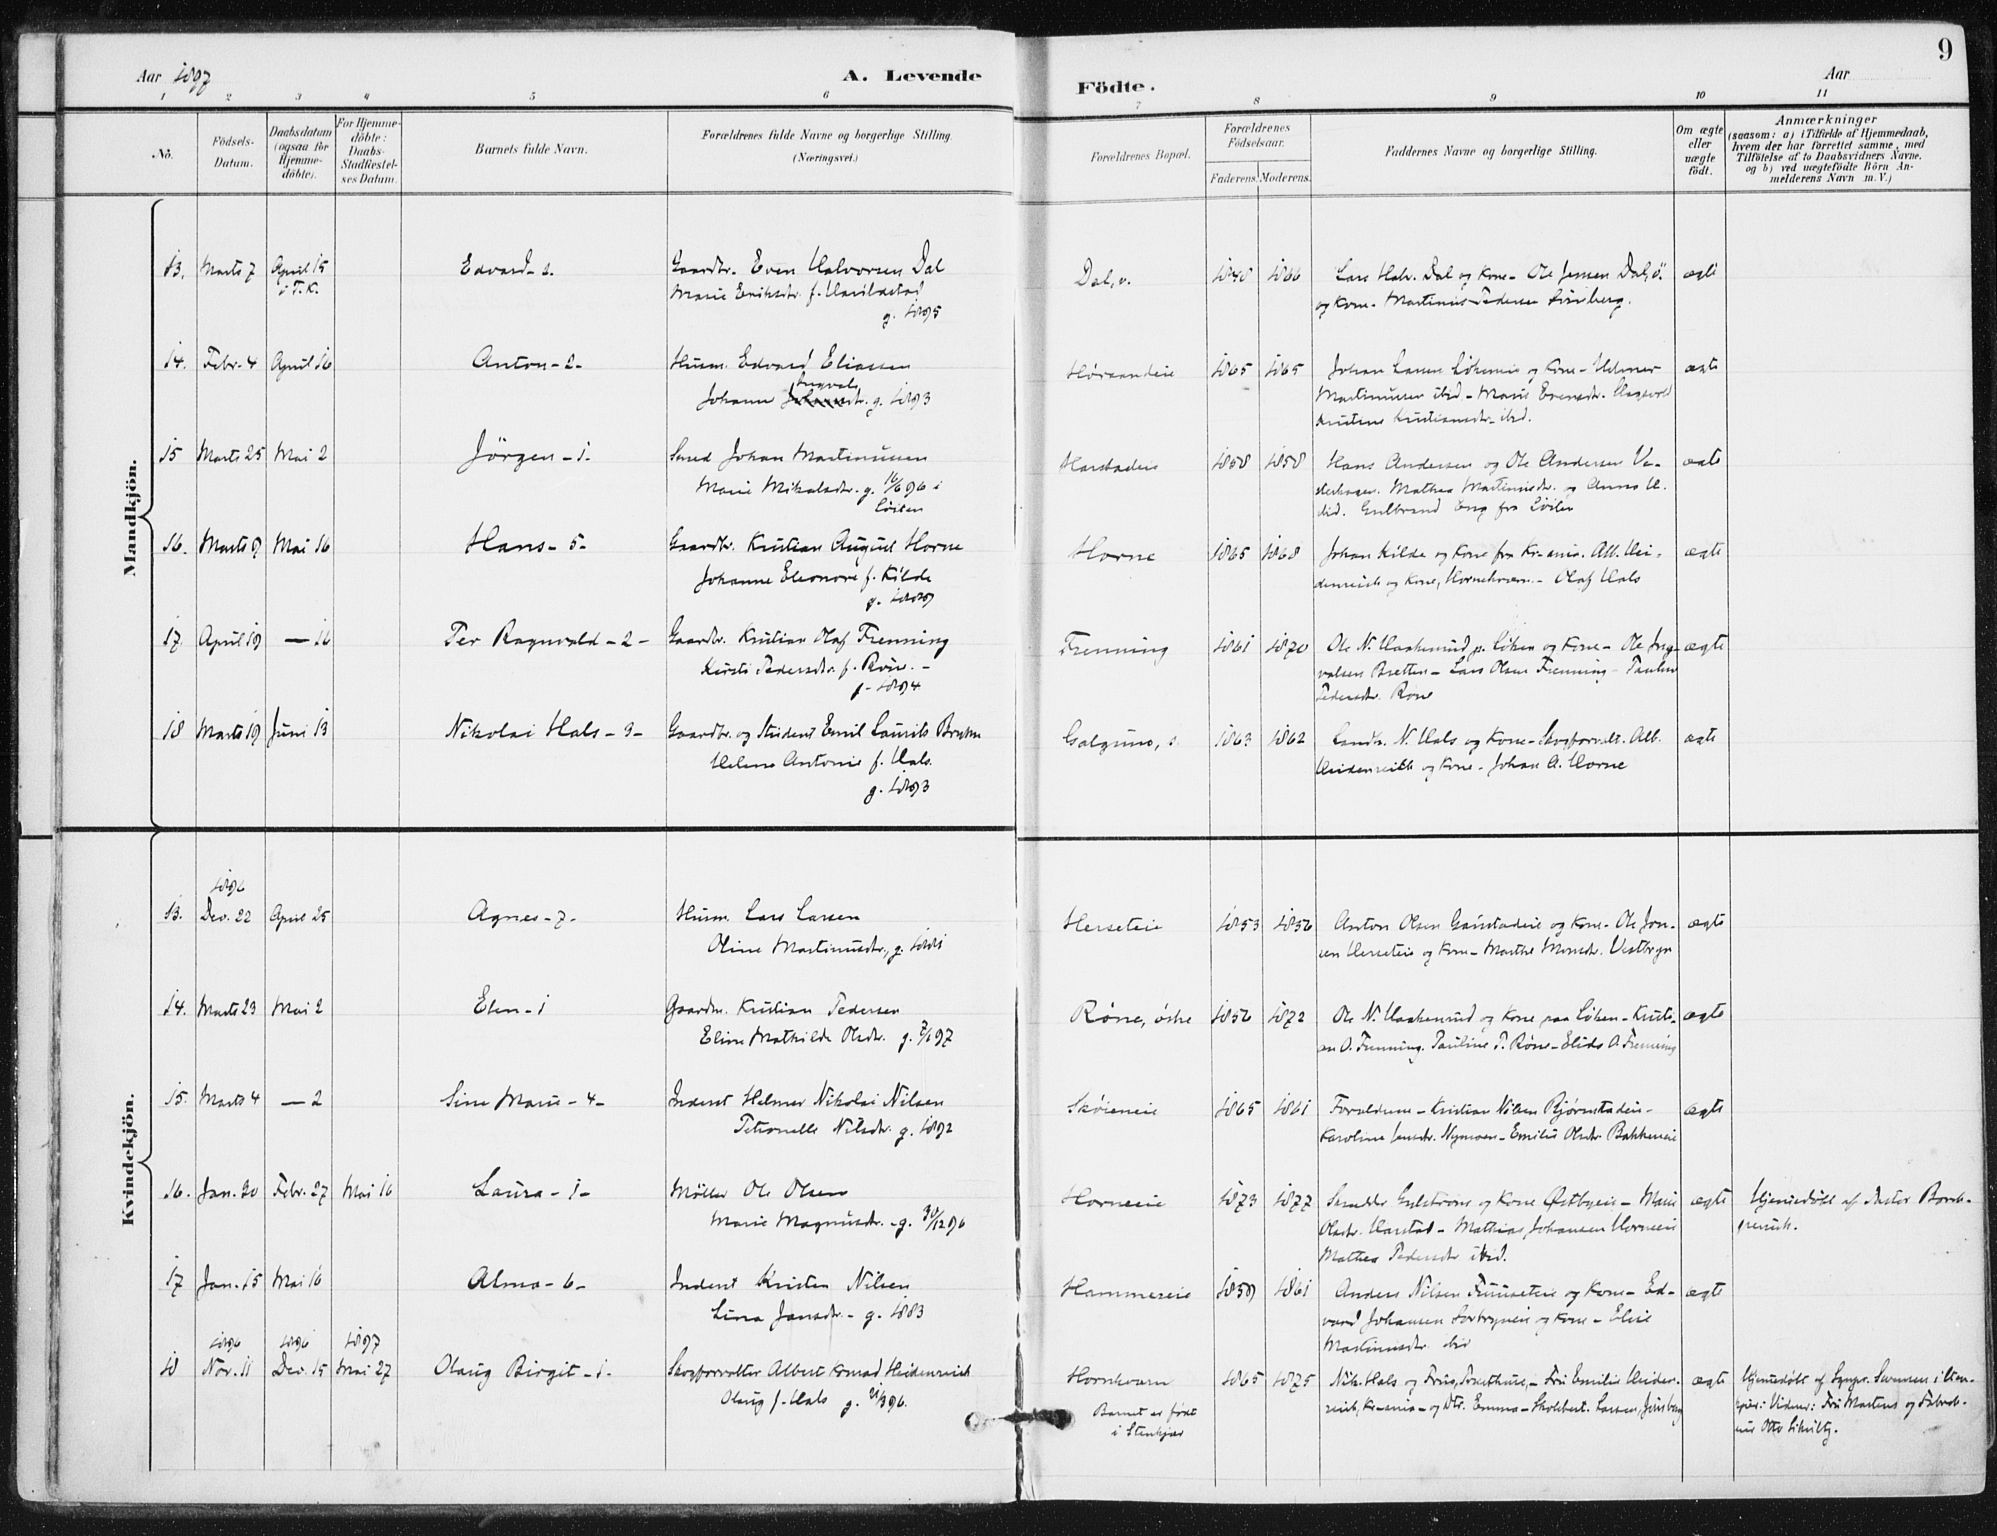 Aar 1897
A. Levende
Födte.
Aar
9
1 2 3 4 5 6 7 8 9 10 11
No.
Födsels-
Datum.
Daabsdatum
(ogsaa for
Hjemme-
döbte).
For Hjemme-
döbte:
Daabs-
Stadfæstel-
ses Datum.
Barnets fulde Navn.
Forældrenes fulde Navne og borgerlige Stilling.
(Næringsvei.)
Forældrenes Bopæl.
Forældrenes
Födselsaar.
Faderens. Moderens.
Faddernes Navne og borgerlige Stilling.
Om ægte
eller
uægte
födt.
Anmærkninger
(saasom: a) i Tilfælde af Hjemmedaab,
hvem der har forrettet samme, med
Tilföielse af to Daabsvidners Navne,
og b) ved uægtefödte Börn An-
melderens Navn m. V.)
Mandkjön.
13. Marts 7 April 15 Edvard - 2. Gaardbr. Even Halvorsen Dal Dal, v. 1848 1866 Lars Halv. Dal og Kone - Ole Jensen Dal, ö. ægte
i T.K. Marie Eriksdtr. f. og Kone - Martinus Pedersen
g. 1895
14. Febr. 4 April 16 Anton - 2 - Husm. Edvard Eliassen Hörsandeie 1865 1865 Johan Larsen og Kone - Helmer ægte
Johanne g. 1893 Martinussen ibid. - Marie Evensdtr.
Kristine Kristiansdtr. ibid.
15 Marts 25 Mai 2 Jörgen - 1 - Smed Johan Martinussen Harstadeie 1858 1858 Hans Andersen og Ole Andersen Ve- ægte
Marie Mikalsdtr. g. 16/6 96 i Mathea Martinusdtr. og Anna A.
Löiten ibid. Gulbrand Eng fra Löiten
16. Marts 9 Mai 16 Hans - 5 - Gaardbr. Kristian August Horne Horne 1865 1868 Johan Kilde og Kone fra Kr-ania. Alb. Hei- ægte
Johanne Eleonore f. Kilde denreich og Kone, Hornekværn - Olaf Hals
g. 1889
17. April 19 — 16 Per Ragnvald - 2 - Gaardbr. Kristian Olaf Frenning Frenning 1861 1870 Ole N. Haakenrud p. Löken og Kone - Ole Ing- ægte
Kirsti Pedersdtr. f. Röne. - valsen Bretten - Lars Olsen Frenning - Pauline
g. 1894 Pedersdtr. Rone
18 Marts 19 Juni 13 Nikolai Hals - 3 - Gaardbr. og Student Emil Laurits 1863 1862 Landh. N. Hals og Kone - Skogforvalt. Alb. ægte
Helene Antonie f. Hals. Heidenreich og Kone - Johan A. Horne
g. 1893
Kvindekjön.
1896
13. Dec. 22 April 25 Agnes - 7 - Husm. Lars Larsen Herseteie 1853 1856 Anton Olsen og Kone - Ole Jon- ægte
Oline Martinusdtr., g. 1881 sen Herseteie og Kone - Marthe Monsdtr. Vestbryn
14. Marts 23 Mai 2 Elen - 1 Gaardbr. Kristian Pedersen Röne, östre 1856 1872 Ole N. Haakenrud og Kone paa Löken - Kristi- ægte
Eline Mathilde Olsdtr. g. 7/1 97 an O. Frenning. Pauline P. Röne - Elida O. Frenning
15. Marts 4 — 2 Sine Marie - 4 - Inderst Helmer Nikolai Nilsen Sköieneie 1865 1861 Forældrene - Kristian Nilsen Bjørnstadeie - ægte
Petronelle Nilsdtr. g. 1892 Karoline Jensdtr. Nymoen - Emilie Olsdtr. Bakkeneie
16. Jan. 30 Febr. 27 Mai 16 Laura - 1 - Møller Ole Olsen Horneeie 1873 1877 og Kone Østbyeie - Marie ægte Hjemmedöbt af Pastor Borch-
Marie Magnusdtr. - g. 30/12 96 Olsdtr. Harstad - Mathias Johansen Horneeie grevink.
Mathea Pedersdtr. ibid.
17 Jan. 15 Mai 16 Alma - 6 - Inderst Kristen Nilsen Hammereie 1859 1861 Anders Nilsen og Kone - Ed- ægte
Lina Jansdtr. - g. 1883 vard Johansen Sorbryneie og Kone - Elise
Martinusdtr. ibid
1896 1896 1897
18 Nov. 11 Dec. 15 Mai 27 Olaug Birgit - 1. Skogforvalter Albert Konrad Heidenreich Hornkværn 1865 1875 Nik. Hals og Frue, - Fru Emilie Heiden- ægte Hjemmedöbt af Sogpr. Svensen i
Olaug f. Hals g. 21/3 96. Barnet er født reich, Kr-ania - og Dtr. Emma - Vidner: Fru Martens og
i Stenkjær Otto